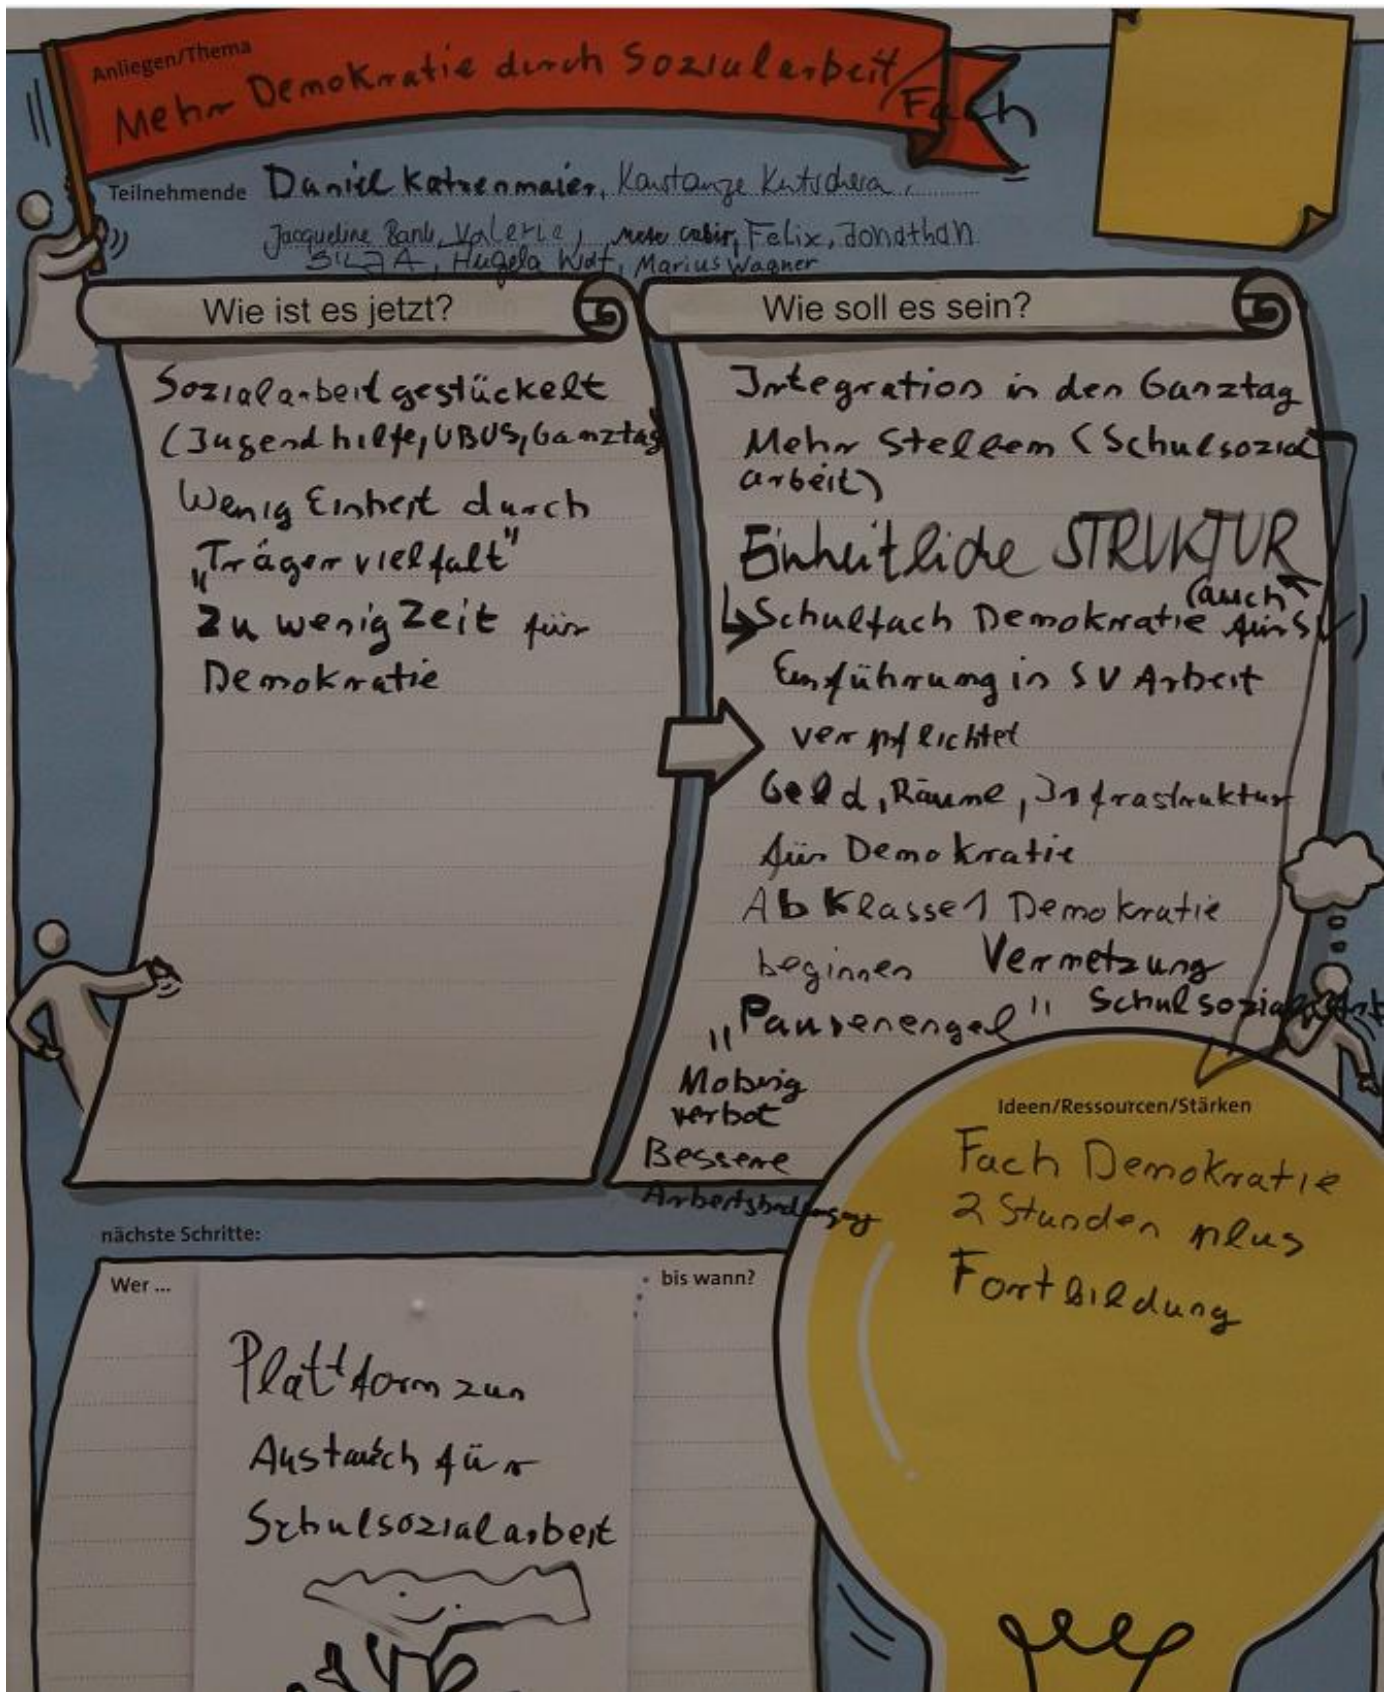 Anliegen/Thema
Mehr Demokratie durch Sozialarbeit/
Fach
Teilnehmende Daniel Katzenmaier, Konstanze Kutschera,
Jacqueline Bank, Valerie, Felix, Jonathan
SILJA, Marius Wagner
Wie ist es jetzt?
Sozialarbeit gestückelt
(Jugendhilfe, UBUS, Ganztag
Wenig Einheit durch
„Trägervielfalt"
Zu wenig Zeit für
Demokratie
Wie soll es sein?
Integration in den Ganztag
Mehr Stellen (Schulsozial
arbeit)
Einheitliche STRUKTUR
(auch
Schulfach Demokratie für SV)
Einführung in SV Arbeit
verpflichtet
Geld, Räume, Infrastruktur
für Demokratie
Ab Klasse 1 Demokratie
beginnen Vernetzung
„Pausenengel" Schulsozial
Mobing
verbot
Bessere
Arbeitsbedingung
Ideen/Ressourcen/Stärken
Fach Demokratie
2 Stunden plus
Fortbildung
nächste Schritte:
Wer ...
bis wann?
Plattform zun
Austausch für
Schulsozialarbeit